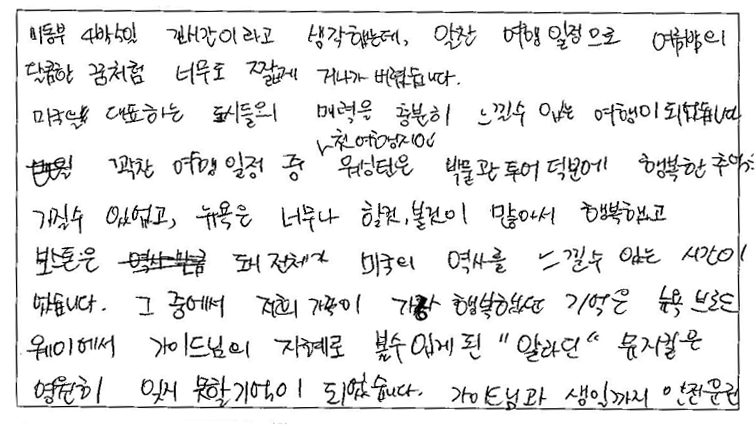 미동부 4박5일 긴시간이라고 생각했는데, 알찬 여행 일정으로 여름밤의
달콤한 꿈처럼 너무도 짧게 지나가 버렸습니다.
미국을 대표하는 도시들의 매력을 충분히 느낄수 있는 여행이 되었습니다
첫 여행지인
꽉찬 여행 일정 중 워싱턴은 박물관 투어 덕분에 행복한 추억을
가질수 있었고, 뉴욕은 너무나 할것, 볼것이 많아서 행복했고
보스톤은 도시 전체가 미국의 역사를 느낄수 있는 시간이
었습니다. 그 중에서 저희 가족이 가장 행복했던 기억은 뉴욕 브로드
웨이에서 가이드님의 지혜로 볼수 있게 된 "알라딘" 뮤지컬은
영원히 잊지 못할 기억이 되었습니다. 가이드님과 생일까지 안전운전